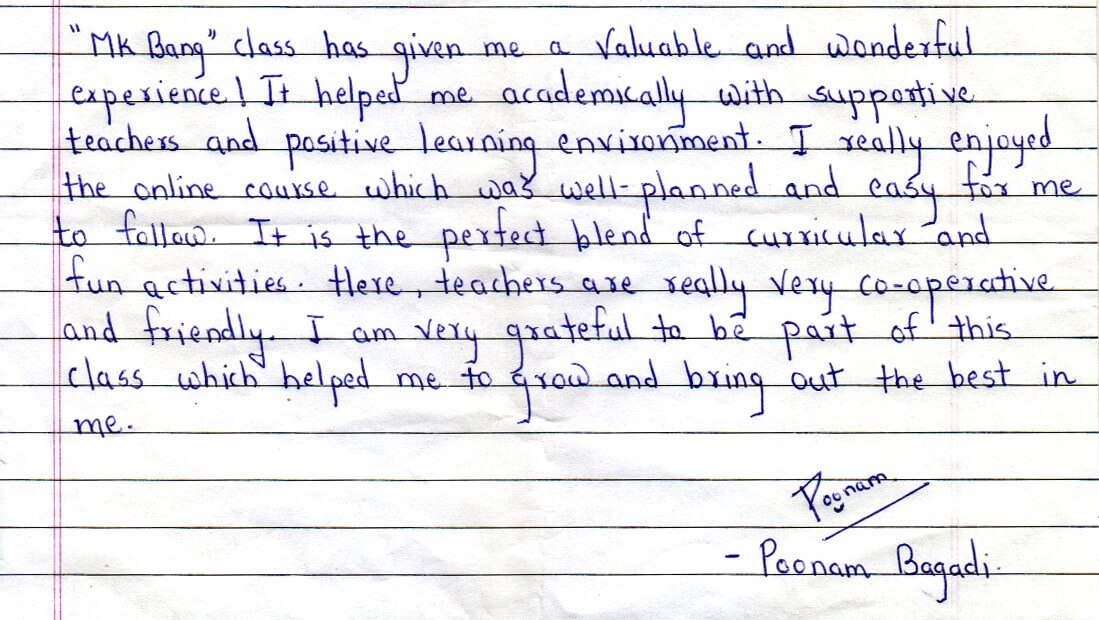 "MK Bang" class has given me a valuable and wonderful
experience! It helped me academically with supportive
teachers and positive learning environment. I really enjoyed
the online course which was well-planned and easy for me
to follow. It is the perfect blend of curricular and
fun activities. Here, teachers are really very co-operative
and friendly. I am very grateful to be part of this
class which helped me to grow and bring out the best in
me.
Poonam
- Poonam Bagadi.